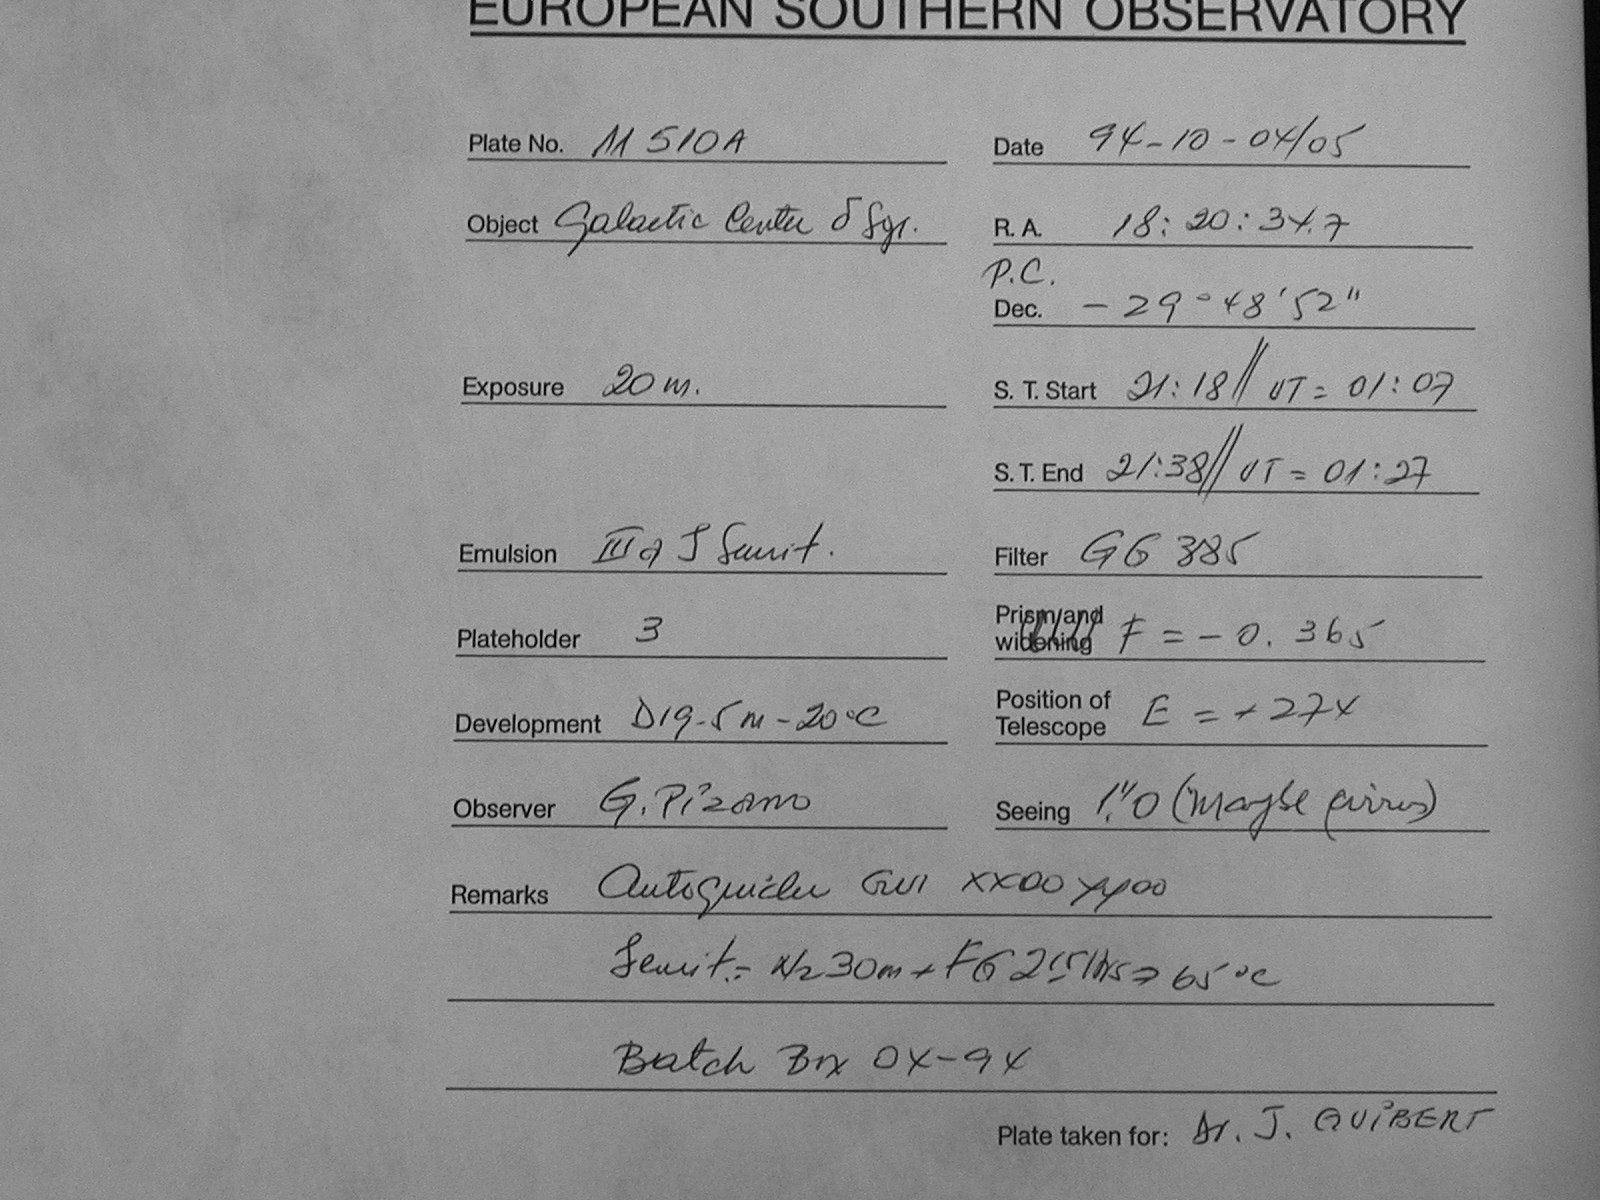 EUROPEAN SOUTHERN OBSERVATORY
Plate No. M 510A
Date 94-10-04/05
Object Galactic Center δ Sgr.
R. A. 18:20:34.7
P.C.
Dec. -29°48'52"
Exposure 20 m.
S. T. Start 21:18// UT = 01:07
S. T. End 21:38// UT = 01:27
Emulsion III a J Sensit.
Filter GG 385
Plateholder 3
Prism/and widening F = -0.365
Development D19-5m-20°C
Position of Telescope E = +274
Observer G. Pizarro
Seeing 1".0 (Maybe cirrus)
Remarks Autoguider XX00 YY00
Sensit.= N2 30m + FG 65°C
Batch Box 04-94
Plate taken for: Dr. J. GUIBERT